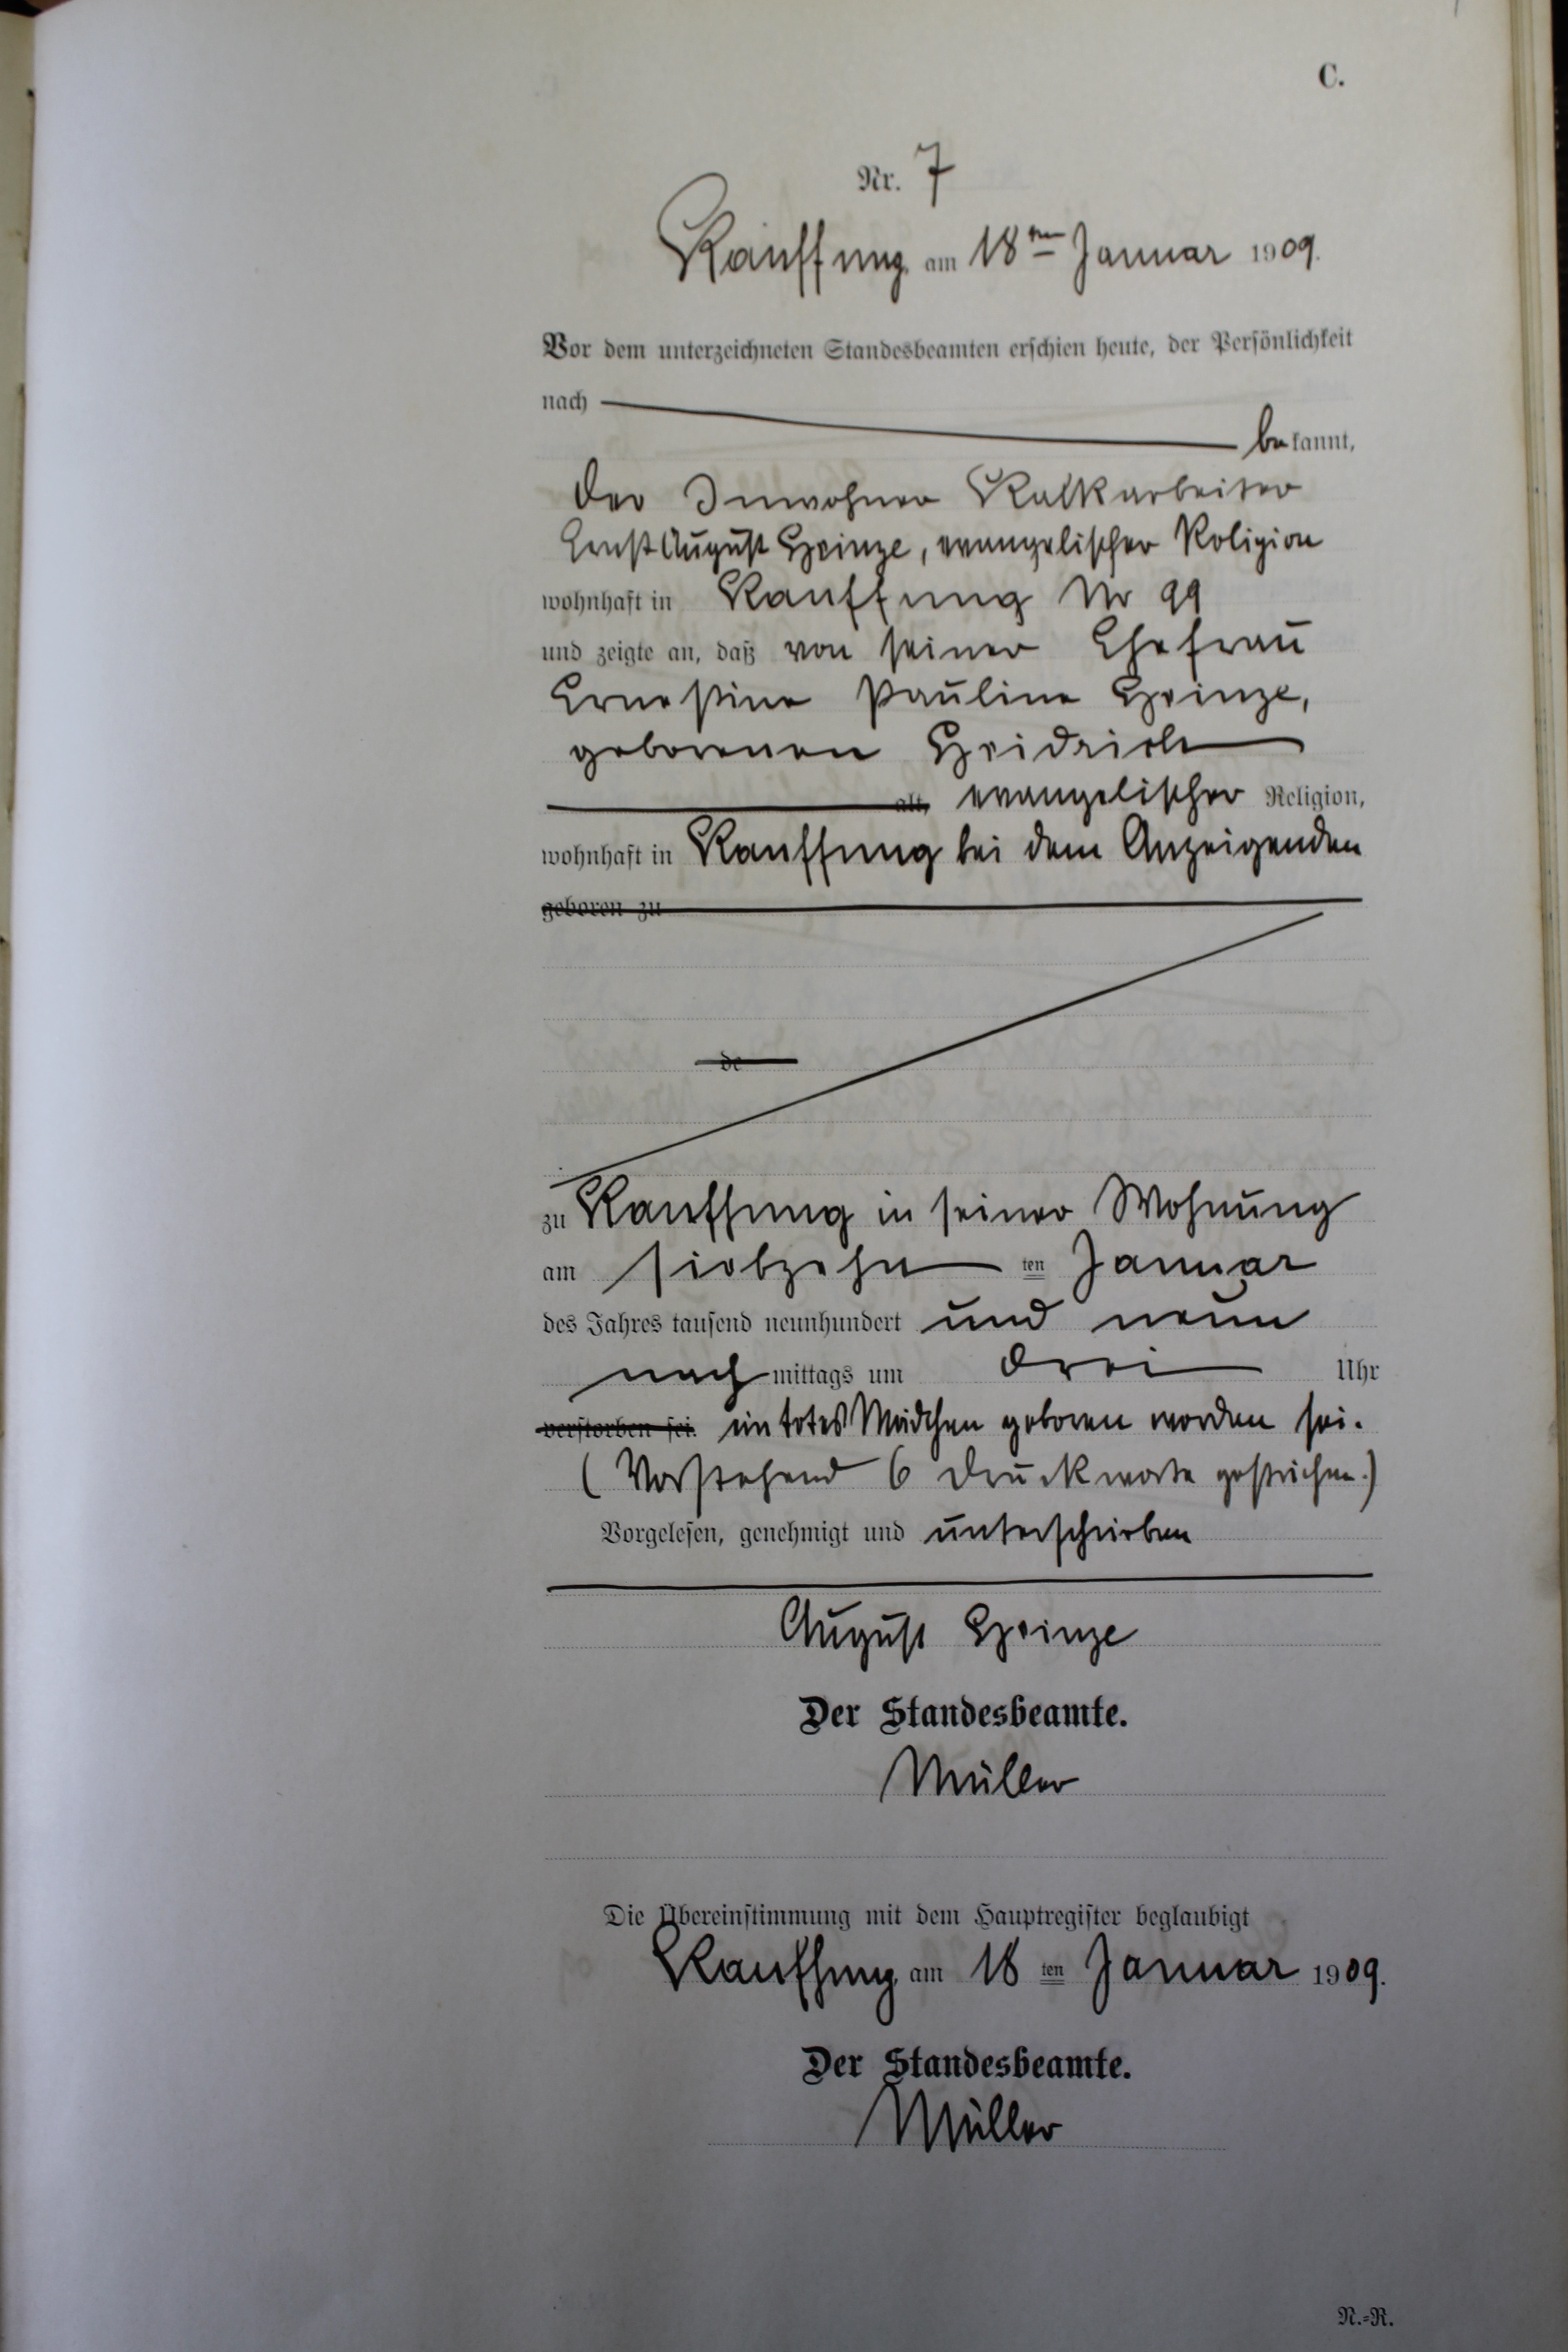 C.
Nr. 7
Kauffung, am 18ten Januar 1909.
Vor dem unterzeichneten Standesbeamten erschien heute, der Persönlichkeit
nach
bekannt,
der Inwohner Kalkarbeiter
Ernst August Heinze, evangelischer Religion
wohnhaft in Kauffung Nr 99
und zeigte an, daß von seiner Ehefrau
Ernestine Pauline Heinze,
geborenen Heidrich
alt, evangelischer Religion,
wohnhaft in Kauffung bei dem Anzeigenden
geboren zu
de
zu Kauffung in seiner Wohnung
am siebzehn ten Januar
des Jahres tausend neunhundert und neun
nachmittags um drei Uhr
verstorben sei. ein totes Mädchen geboren worden sei.
(Vorstehend 6 Druckworte gestrichen.)
Vorgelesen, genehmigt und unterschrieben
August Heinze
Der Standesbeamte.
Müller
Die Übereinstimmung mit dem Hauptregister beglaubigt
Kauffung, am 18 ten Januar 1909.
Der Standesbeamte.
Müller
N.=R.